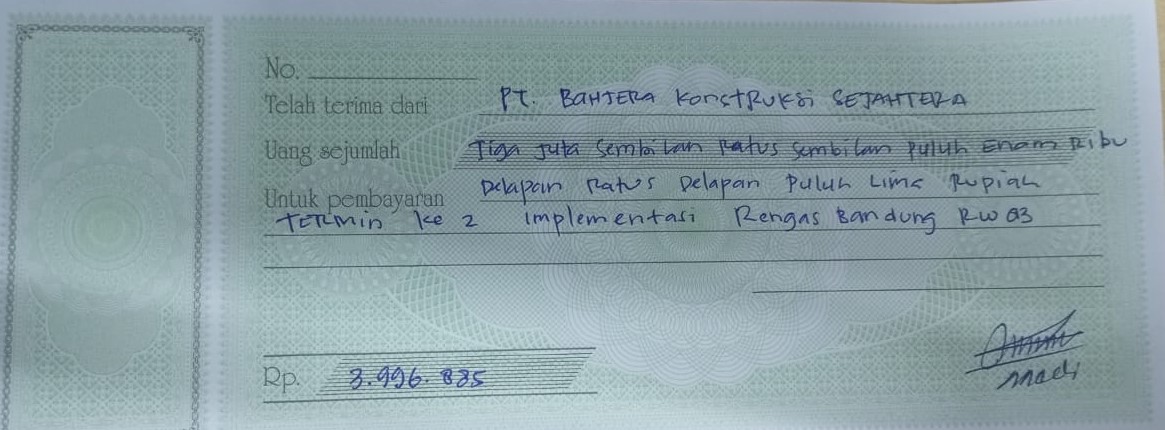 No.
Telah terima dari PT. BAHTERA KonstRuksi SEJAHTERA
Uang sejumlah Tiga Juta Sembilan Ratus Sembilan Puluh Enam Ribu
Delapan Ratus Delapan Puluh Lima Rupiah
Untuk pembayaran
TERMin ke 2 implementasi Rengas Bandung RW 03
Rp. 3.996.885
Madi